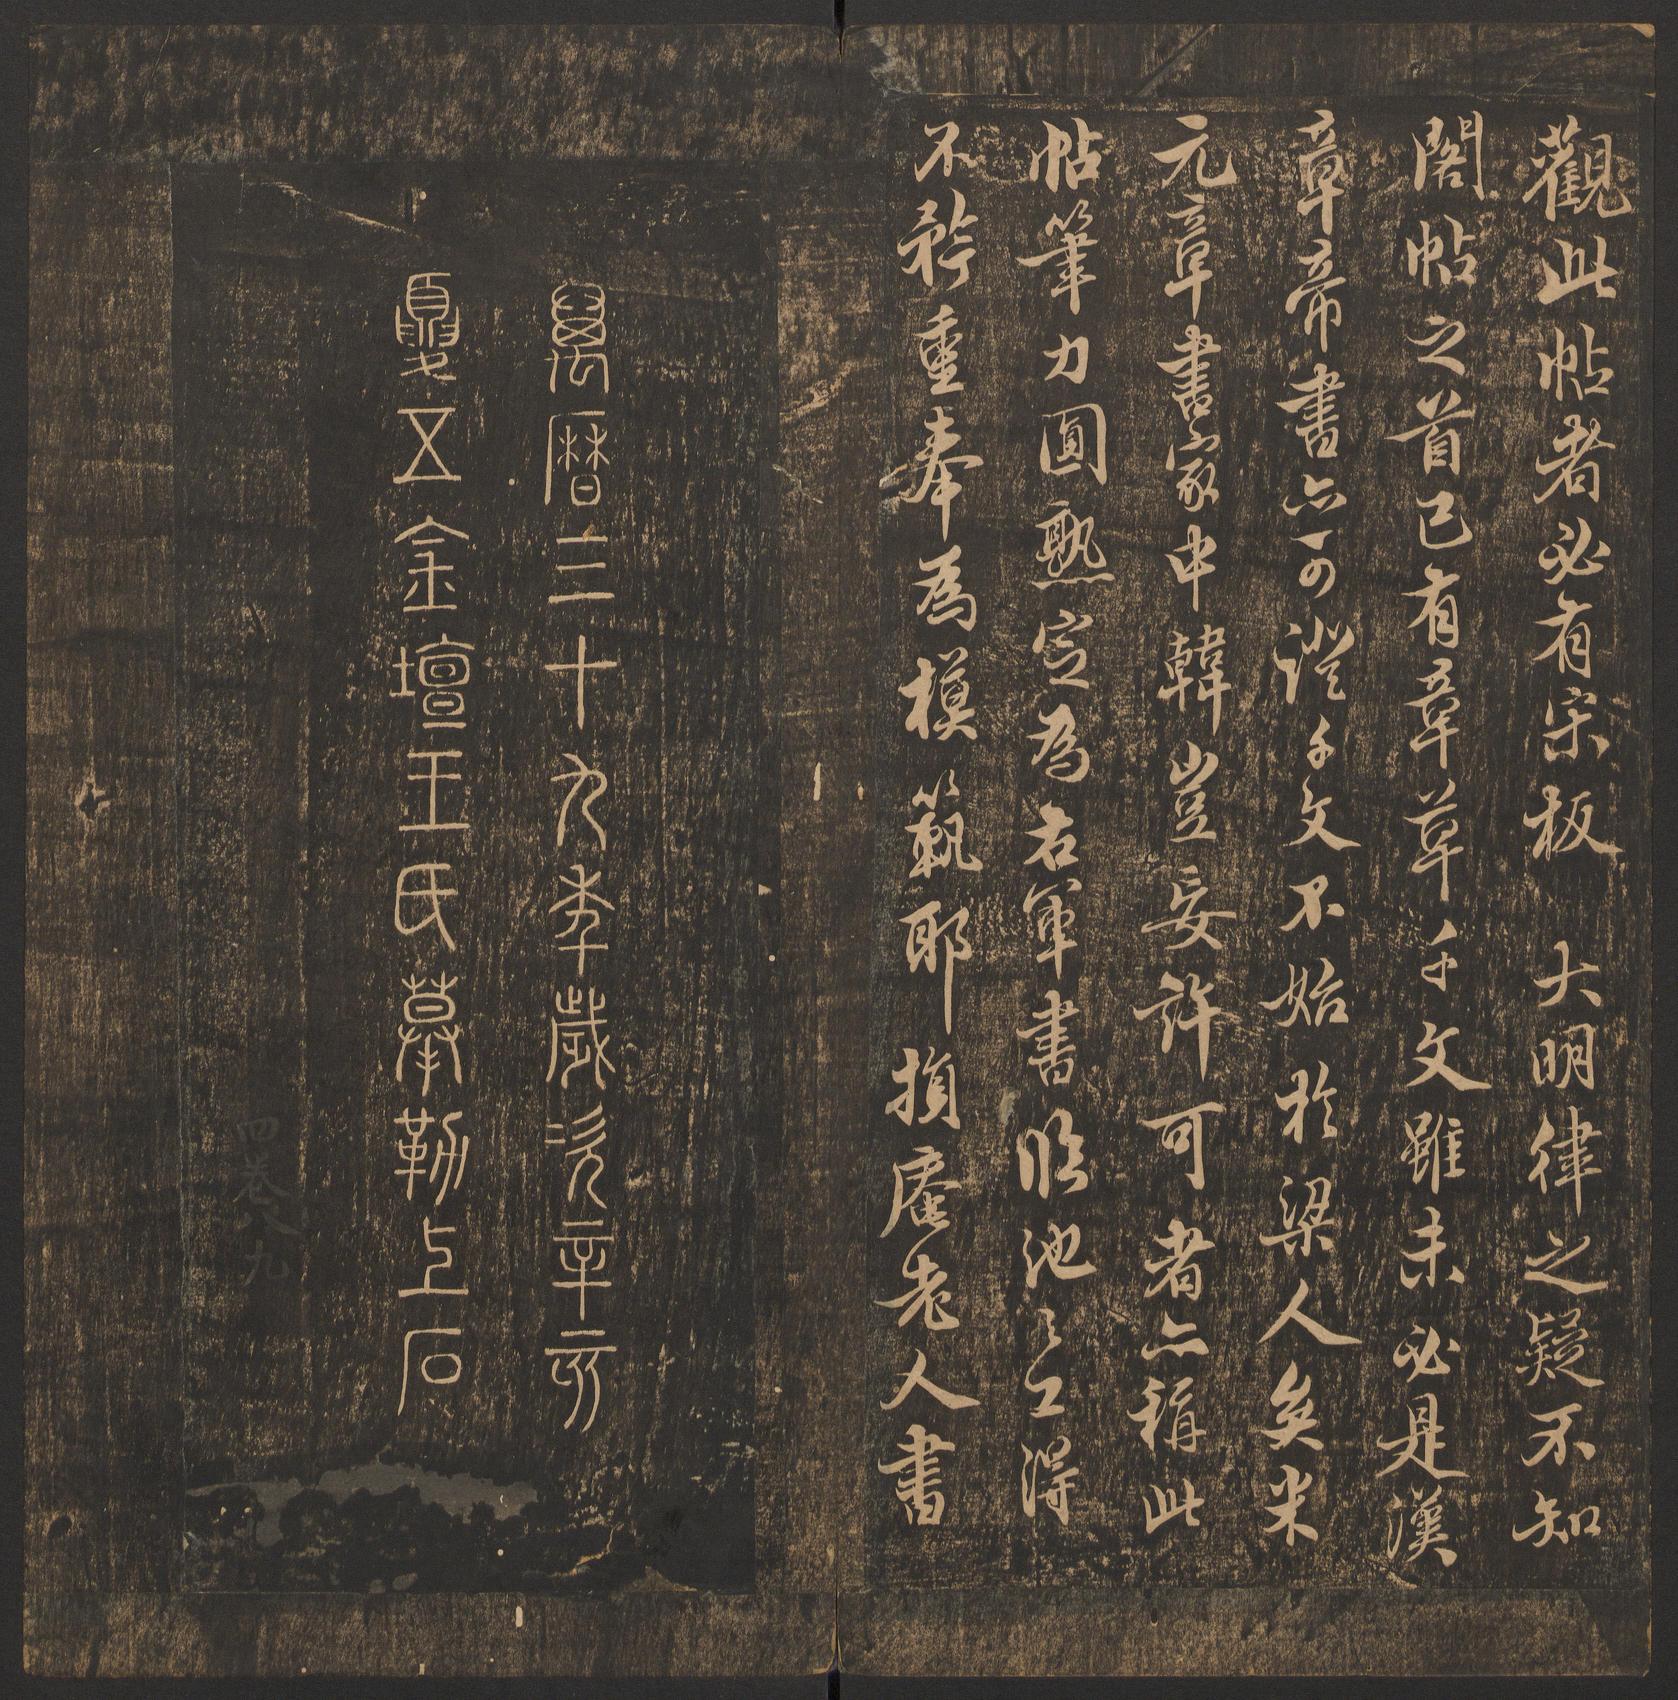 觀此帖者必有宋板大明律之疑不知
閣帖之首已有章草千文雖未必是漢
章帝書亦可證千文不始於梁人矣米
元章書家申韓豈妄許可者亦稱此
帖筆力圓熟定為右軍書臨池之工得
不矜重奉為模範耶 損庵老人書
萬曆三十九年歲次辛亥
夏五金壇王氏摹勒上石
四卷八九